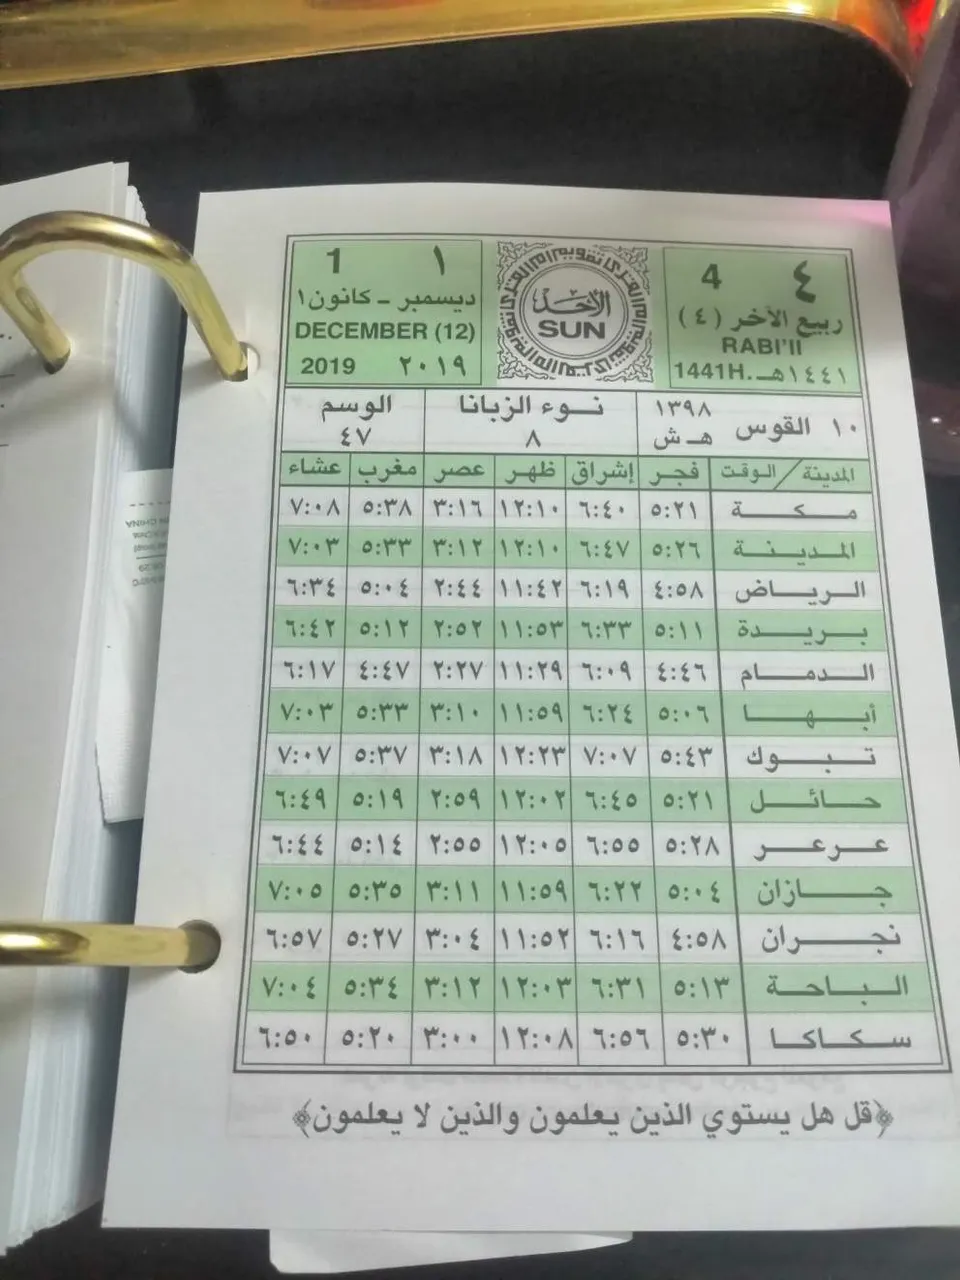 ٤ 4
ربيع الآخر (٤)
RABI'II
1441H. ١٤٤١هـ
الأحد
SUN
1 ١
ديسمبر - كانون١
DECEMBER (12)
2019 ٢٠١٩
١٠ القوس ١٣٩٨ هـ ش
نوء الزبانا
٨
الوسم
٤٧
المدينة / الوقت فجر إشراق ظهر عصر مغرب عشاء
مكة ٥:٢١ ٦:٤٠ ١٢:١٠ ٣:١٦ ٥:٣٨ ٧:٠٨
المدينة ٥:٢٦ ٦:٤٧ ١٢:١٠ ٣:١٢ ٥:٣٣ ٧:٠٣
الرياض ٤:٥٨ ٦:١٩ ١١:٤٢ ٢:٤٤ ٥:٠٤ ٦:٣٤
بريدة ٥:١١ ٦:٣٣ ١١:٥٣ ٢:٥٢ ٥:١٢ ٦:٤٢
الدمام ٤:٤٦ ٦:٠٩ ١١:٢٩ ٢:٢٧ ٤:٤٧ ٦:١٧
أبها ٥:٠٦ ٦:٢٤ ١١:٥٩ ٣:١٠ ٥:٣٣ ٧:٠٣
تبوك ٥:٤٣ ٧:٠٧ ١٢:٢٣ ٣:١٨ ٥:٣٧ ٧:٠٧
حائل ٥:٢١ ٦:٤٥ ١٢:٠٢ ٢:٥٩ ٥:١٩ ٦:٤٩
عرعر ٥:٢٨ ٦:٥٥ ١٢:٠٥ ٢:٥٥ ٥:١٤ ٦:٤٤
جازان ٥:٠٤ ٦:٢٢ ١١:٥٩ ٣:١١ ٥:٣٥ ٧:٠٥
نجران ٤:٥٨ ٦:١٦ ١١:٥٢ ٣:٠٤ ٥:٢٧ ٦:٥٧
الباحة ٥:١٣ ٦:٣١ ١٢:٠٣ ٣:١٢ ٥:٣٤ ٧:٠٤
سكاكا ٥:٣٠ ٦:٥٦ ١٢:٠٨ ٣:٠٠ ٥:٢٠ ٦:٥٠
﴿قل هل يستوي الذين يعلمون والذين لا يعلمون﴾